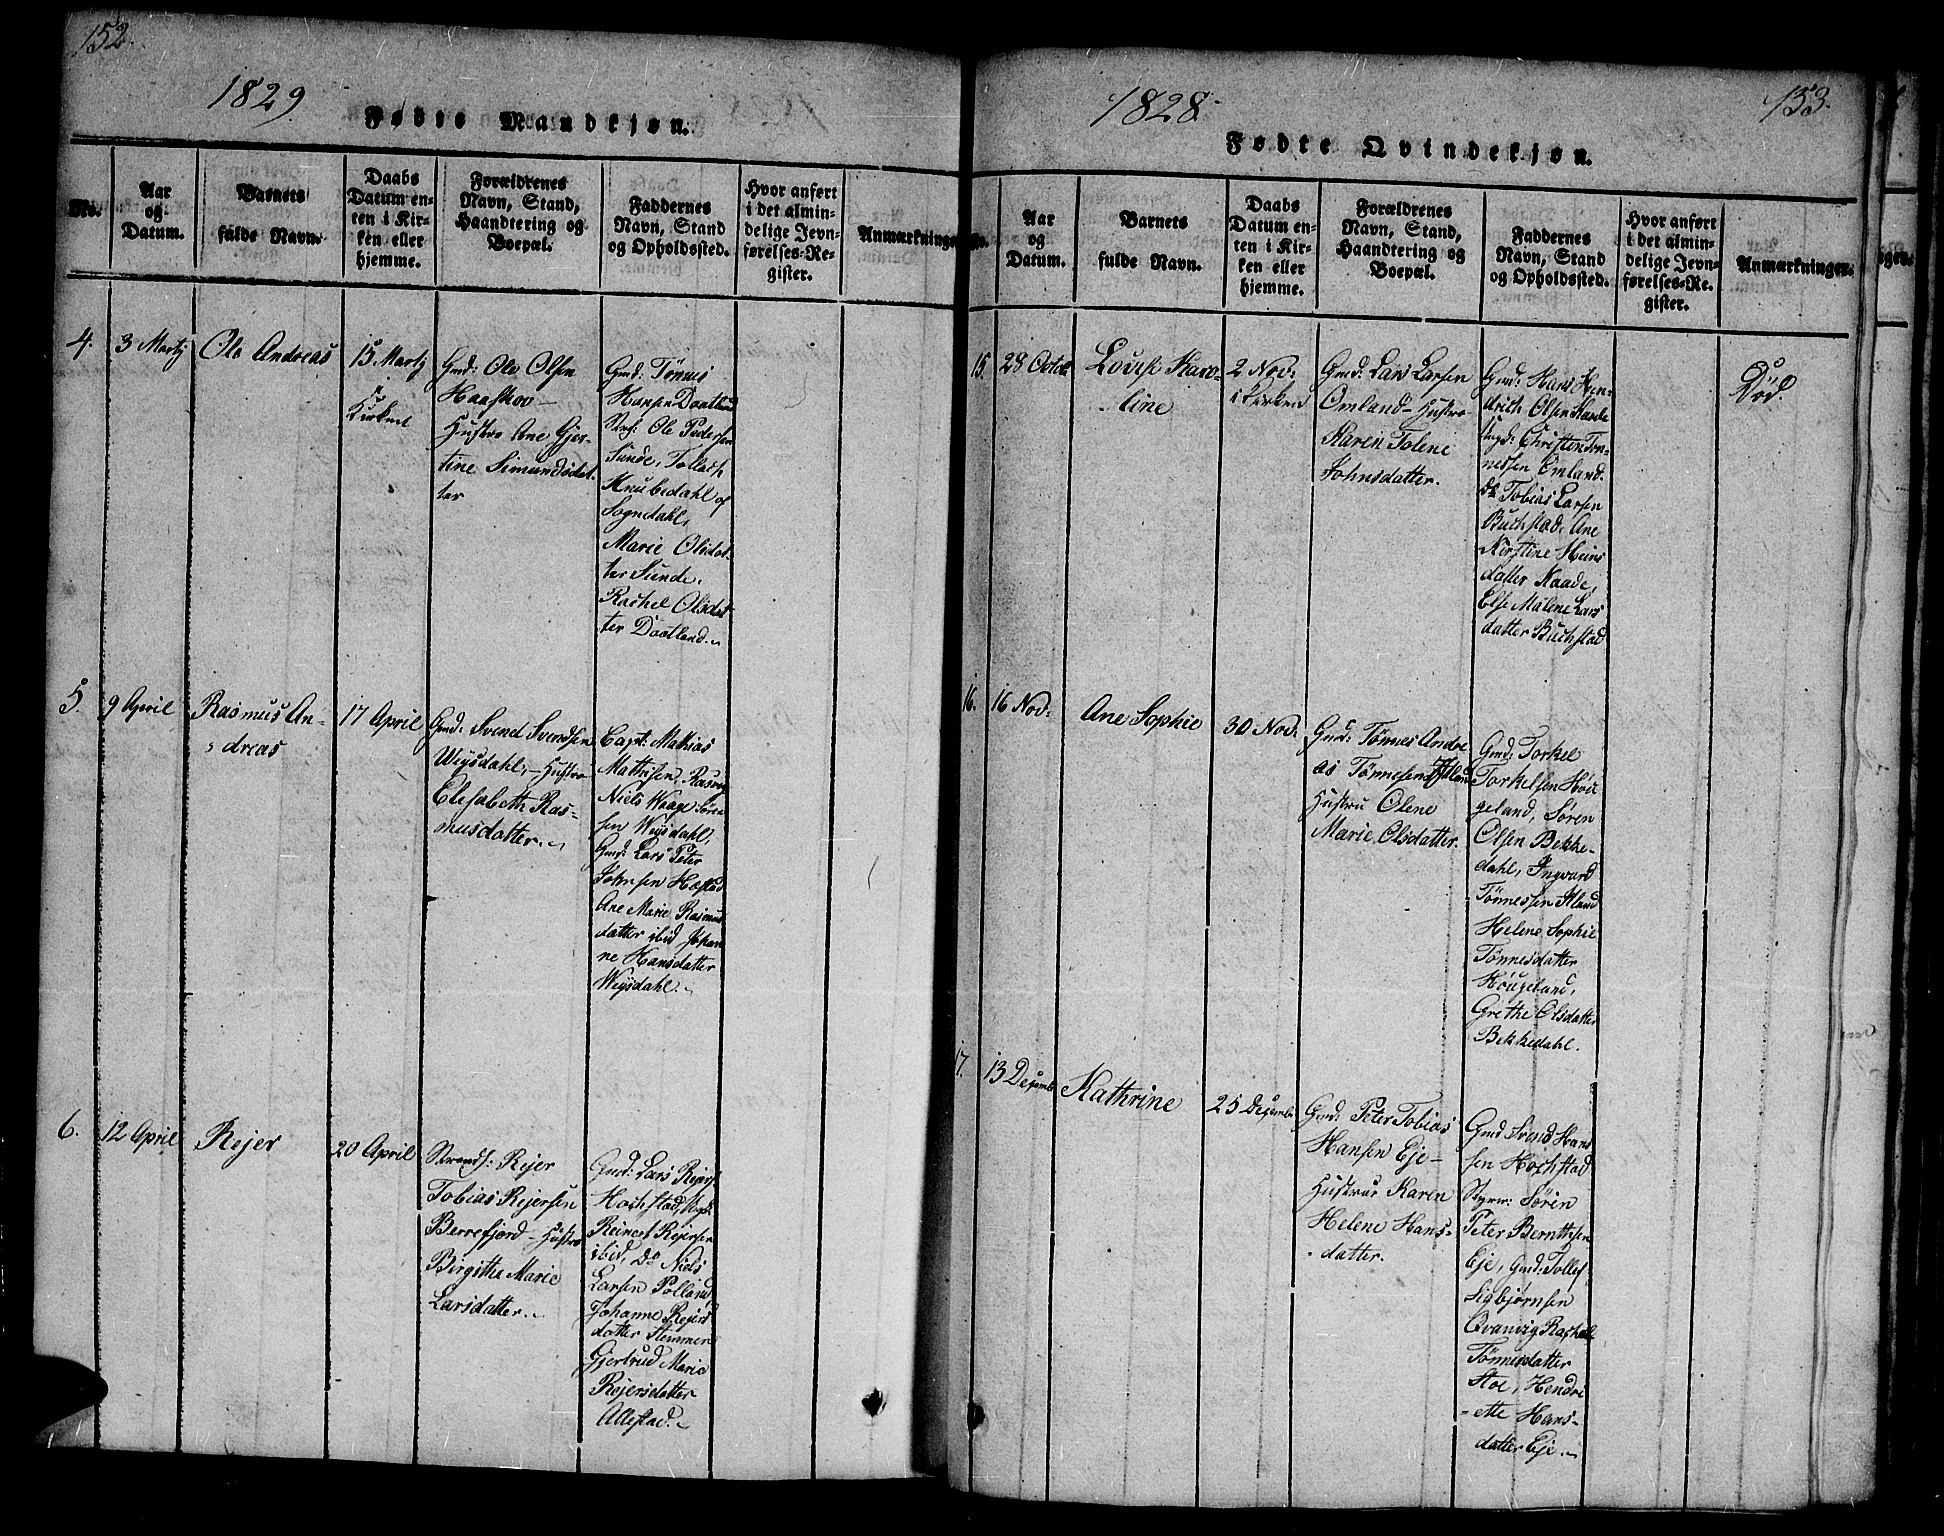 152.
1829
Fødte Mandkjøn.
No.
Aar
og
Datum.
Barnets
fulde Navn.
Daabs
Datum en-
ten i Kir-
ken eller
hjemme.
Forældrenes
Navn, Stand,
Haandtering og
Boepæl.
Faddernes
Navn, Stand
og Opholdssted.
Hvor anført
i det almin-
delige Jevn-
førelses-Re-
gister.
Anmærkninger
4.
3 Martj
Ole Andreas
15 Martj
i
Kirken
Gmd: Ole Olsen
Haaskov —
Hustro Ane Gjer-
tine Simundsdat-
ter
Gmd: Tønnes
Hansen Daatland
Ole Pedersen
Sunde, Tollach
Knubedahl af
Sogndahl,
Marie Olsdat-
ter Sunde,
Rachel Olsdat-
ter Daatland.
5.
9 April
Rasmus An-
dreas
17 April
Gmd: Svend Svendsen
Weisdahl, — Hustro
Elisabeth Ras-
musdatter.
Capt: Mathias
Mathisen Rasvog
Niels Waage Søren
sen Weisdahl,
Gmd: Lars Peter
Johnsen Hæstad
Ane Marie Rasmus
datter ibid Johan
ne Hansdatter
Weisdahl.
6.
12 April
Rejer
20 April
Strands: Rejer
Tobias Rejersen
Berrefjord — Hustro
Birgithe Marie
Larsdatter.
Gmd: Lars Rejers
Hochstad, Ungd:
Reinert Rejersen
ibid, Do Niels
Larsen Polland,
Johanne Rejers
datter Stemmen
Gjertrud Marie
Rejersdatter
Allestad.
153.
1828.
Fødte Qvindekjøn.
No.
Aar
og
Datum.
Barnets
fulde Navn.
Daabs
Datum en-
ten i Kir-
ken eller
hjemme.
Forældrenes
Navn, Stand,
Haandtering og
Boepæl.
Faddernes
Navn, Stand
og Opholdssted.
Hvor anført
i det almin-
delige Jevn-
førelses-Re-
gister.
Anmærkninger.
15.
28 Octob
Lovise Karo-
line
2 Nov:
i Kirken
Gmd: Lars Larsen
Omland — Hustro
Karen Tolene
Johnsdatter.
Gmd: Hans Hen-
drich Olsen
Ungd: Christen Tøn-
nessen Omland.
Do Tobias Larsen
Buchstad, Ane
Kirstine Heins
datter Naade,
Else Malene Lars
datter Buchstad
Død.
16.
16 Nov:
Ane Sophie
30 Nov:
Gmd: Tønnes Andre
as Tønnesen Øland
Hustru Olene
Marie Olsdatter.
Gmd: Torkel
Torkelsen Høi
geland, Søren
Olsen Bekke-
dahl, Ingvard
Tønnessen
Helene Sophie
Tønnesdatter
Høugeland,
Grethe Olsdatter
Bekkedahl.
17.
13 Decemb
Kathrine
25 Decemb
Gmd: Peter Tobias
Hansen Eje —
Hustrue Karen
Helene Hans-
datter.
Gmd Svend Hans
sen Hochstad
Styrm: Søren
Peter Bernthsen
Eje, Gmd: Tollef
Sigbjørnsen
Qvanvig Rachel
Tønnesdatter
Stoe, Hendri
ette Hans-
datter Eje.